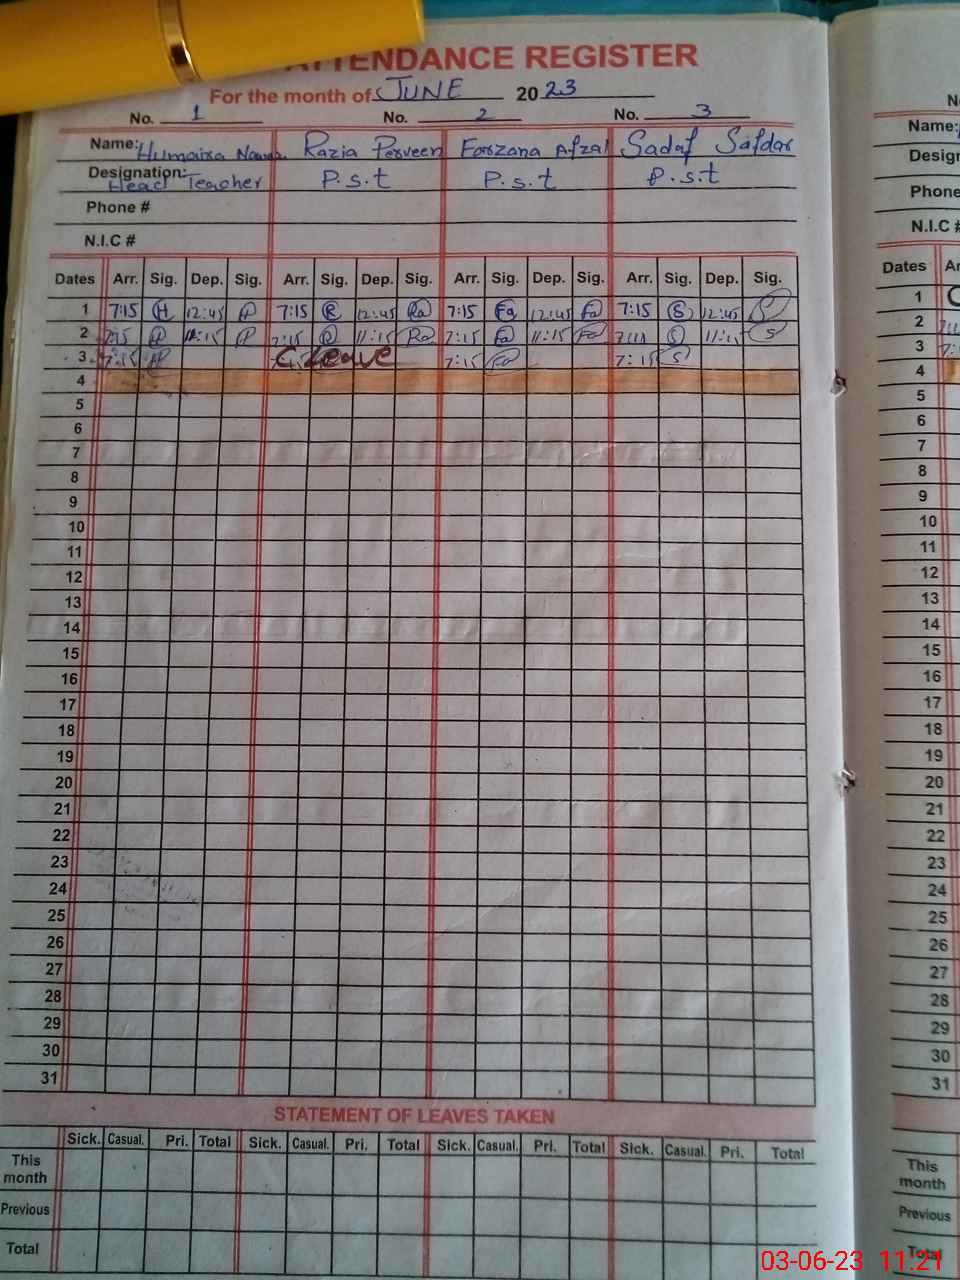 ATTENDANCE REGISTER
For the month of JUNE 2023
No. 1 No. 2 No. 3
Name: Humaira Razia Perveen Farzana Afzal Sadaf Safdar
Designation: Head Teacher P.s.t P.s.t P.s.t
Phone #
N.I.C #
Dates Arr. Sig. Dep. Sig. Arr. Sig. Dep. Sig. Arr. Sig. Dep. Sig. Arr. Sig. Dep. Sig.
1 7:15 H 12:45 7:15 R 12:45 Ra 7:15 Fa 12:45 Fa 7:15 S 12:45 S
2 7:15 11:15 7:15 R 11:15 Ra 7:15 Fa 11:15 Fa S 11:15 S
3 7:15 C. Leave 7:15 Fa 7:15 S
4
5
6
7
8
9
10
11
12
13
14
15
16
17
18
19
20
21
22
23
24
25
26
27
28
29
30
31
STATEMENT OF LEAVES TAKEN
Sick. Casual. Pri. Total Sick. Casual. Pri. Total Sick. Casual. Pri. Total Sick. Casual. Pri. Total
This month
Previous
Total
Name:
Phone
N.I.C #
Dates
1
2
3
4
5
6
7
8
9
10
11
12
13
14
15
16
17
18
19
20
21
22
23
24
25
26
27
28
29
30
31
This month
Previous
Total
03-06-23 11:21